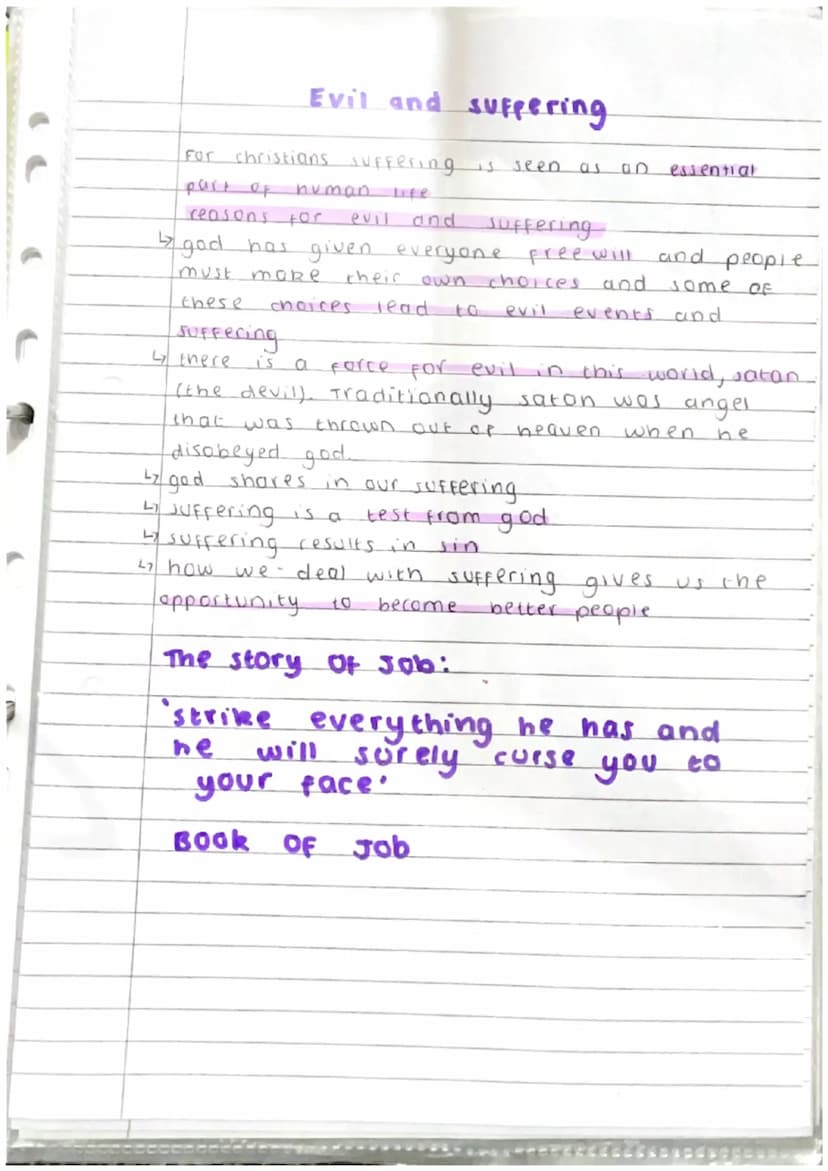 Evil and suffering
For christians suffering is seen as an essential
part of human life
reasons for evil and suffering
↳ god has given everyone free will and people
must make their own choices and some of
these choices lead to evil events and
suffering
↳ there is a force for evil in this world, satan
(the devil). Traditionally satan was angel
that was thrown out of heaven when he
disobeyed god.
↳ god shares in our suffering
↳ suffering is a test from god
↳ suffering results in sin
↳ how we deal with suffering gives us the
opportunity to become better people
The story of Job:
'strike everything he has and
he will surely curse you to
your face'
BOOK OF Job